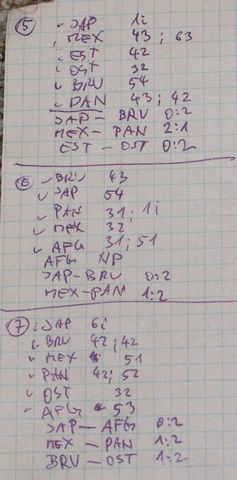 5 JAP 1i
MEX 43; 63
EST 42
OST 32
BRV 54
PAN 43; 42
JAP - BRV 0:2
MEX - PAN 2:1
EST - OST 0:2
6 BRV 43
JAP 54
PAN 31; 1i
MEX 32
AFG 31; 51
AFG NP
JAP-BRV 0:2
MEX-PAN 1:2
7 JAP 6i
BRV 42; 42
MEX 51
PAN 42; 52
OST 32
AFG 53
JAP - AFG 0:2
MEX - PAN 1:2
BRV - OST 1:2